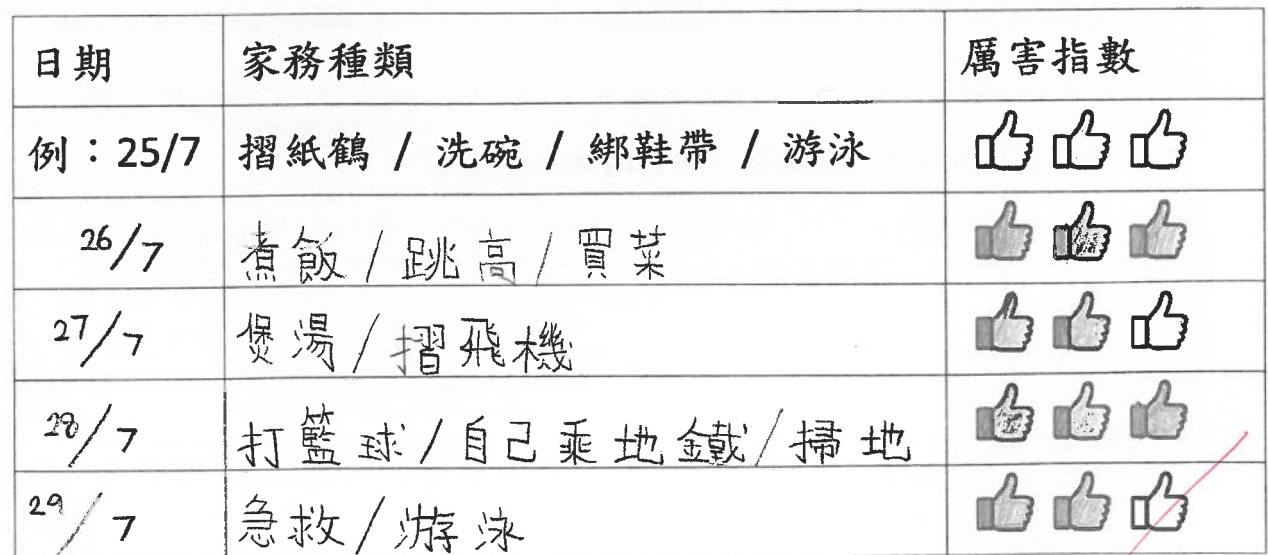 日期 家務種類 厲害指數
例：25/7 摺紙鶴 / 洗碗 / 綁鞋帶 / 游泳
26/7 煮飯/跳高/買菜
27/7 煲湯/摺飛機
28/7 打籃球/自己乘地鐵/掃地
29/7 急救/游泳